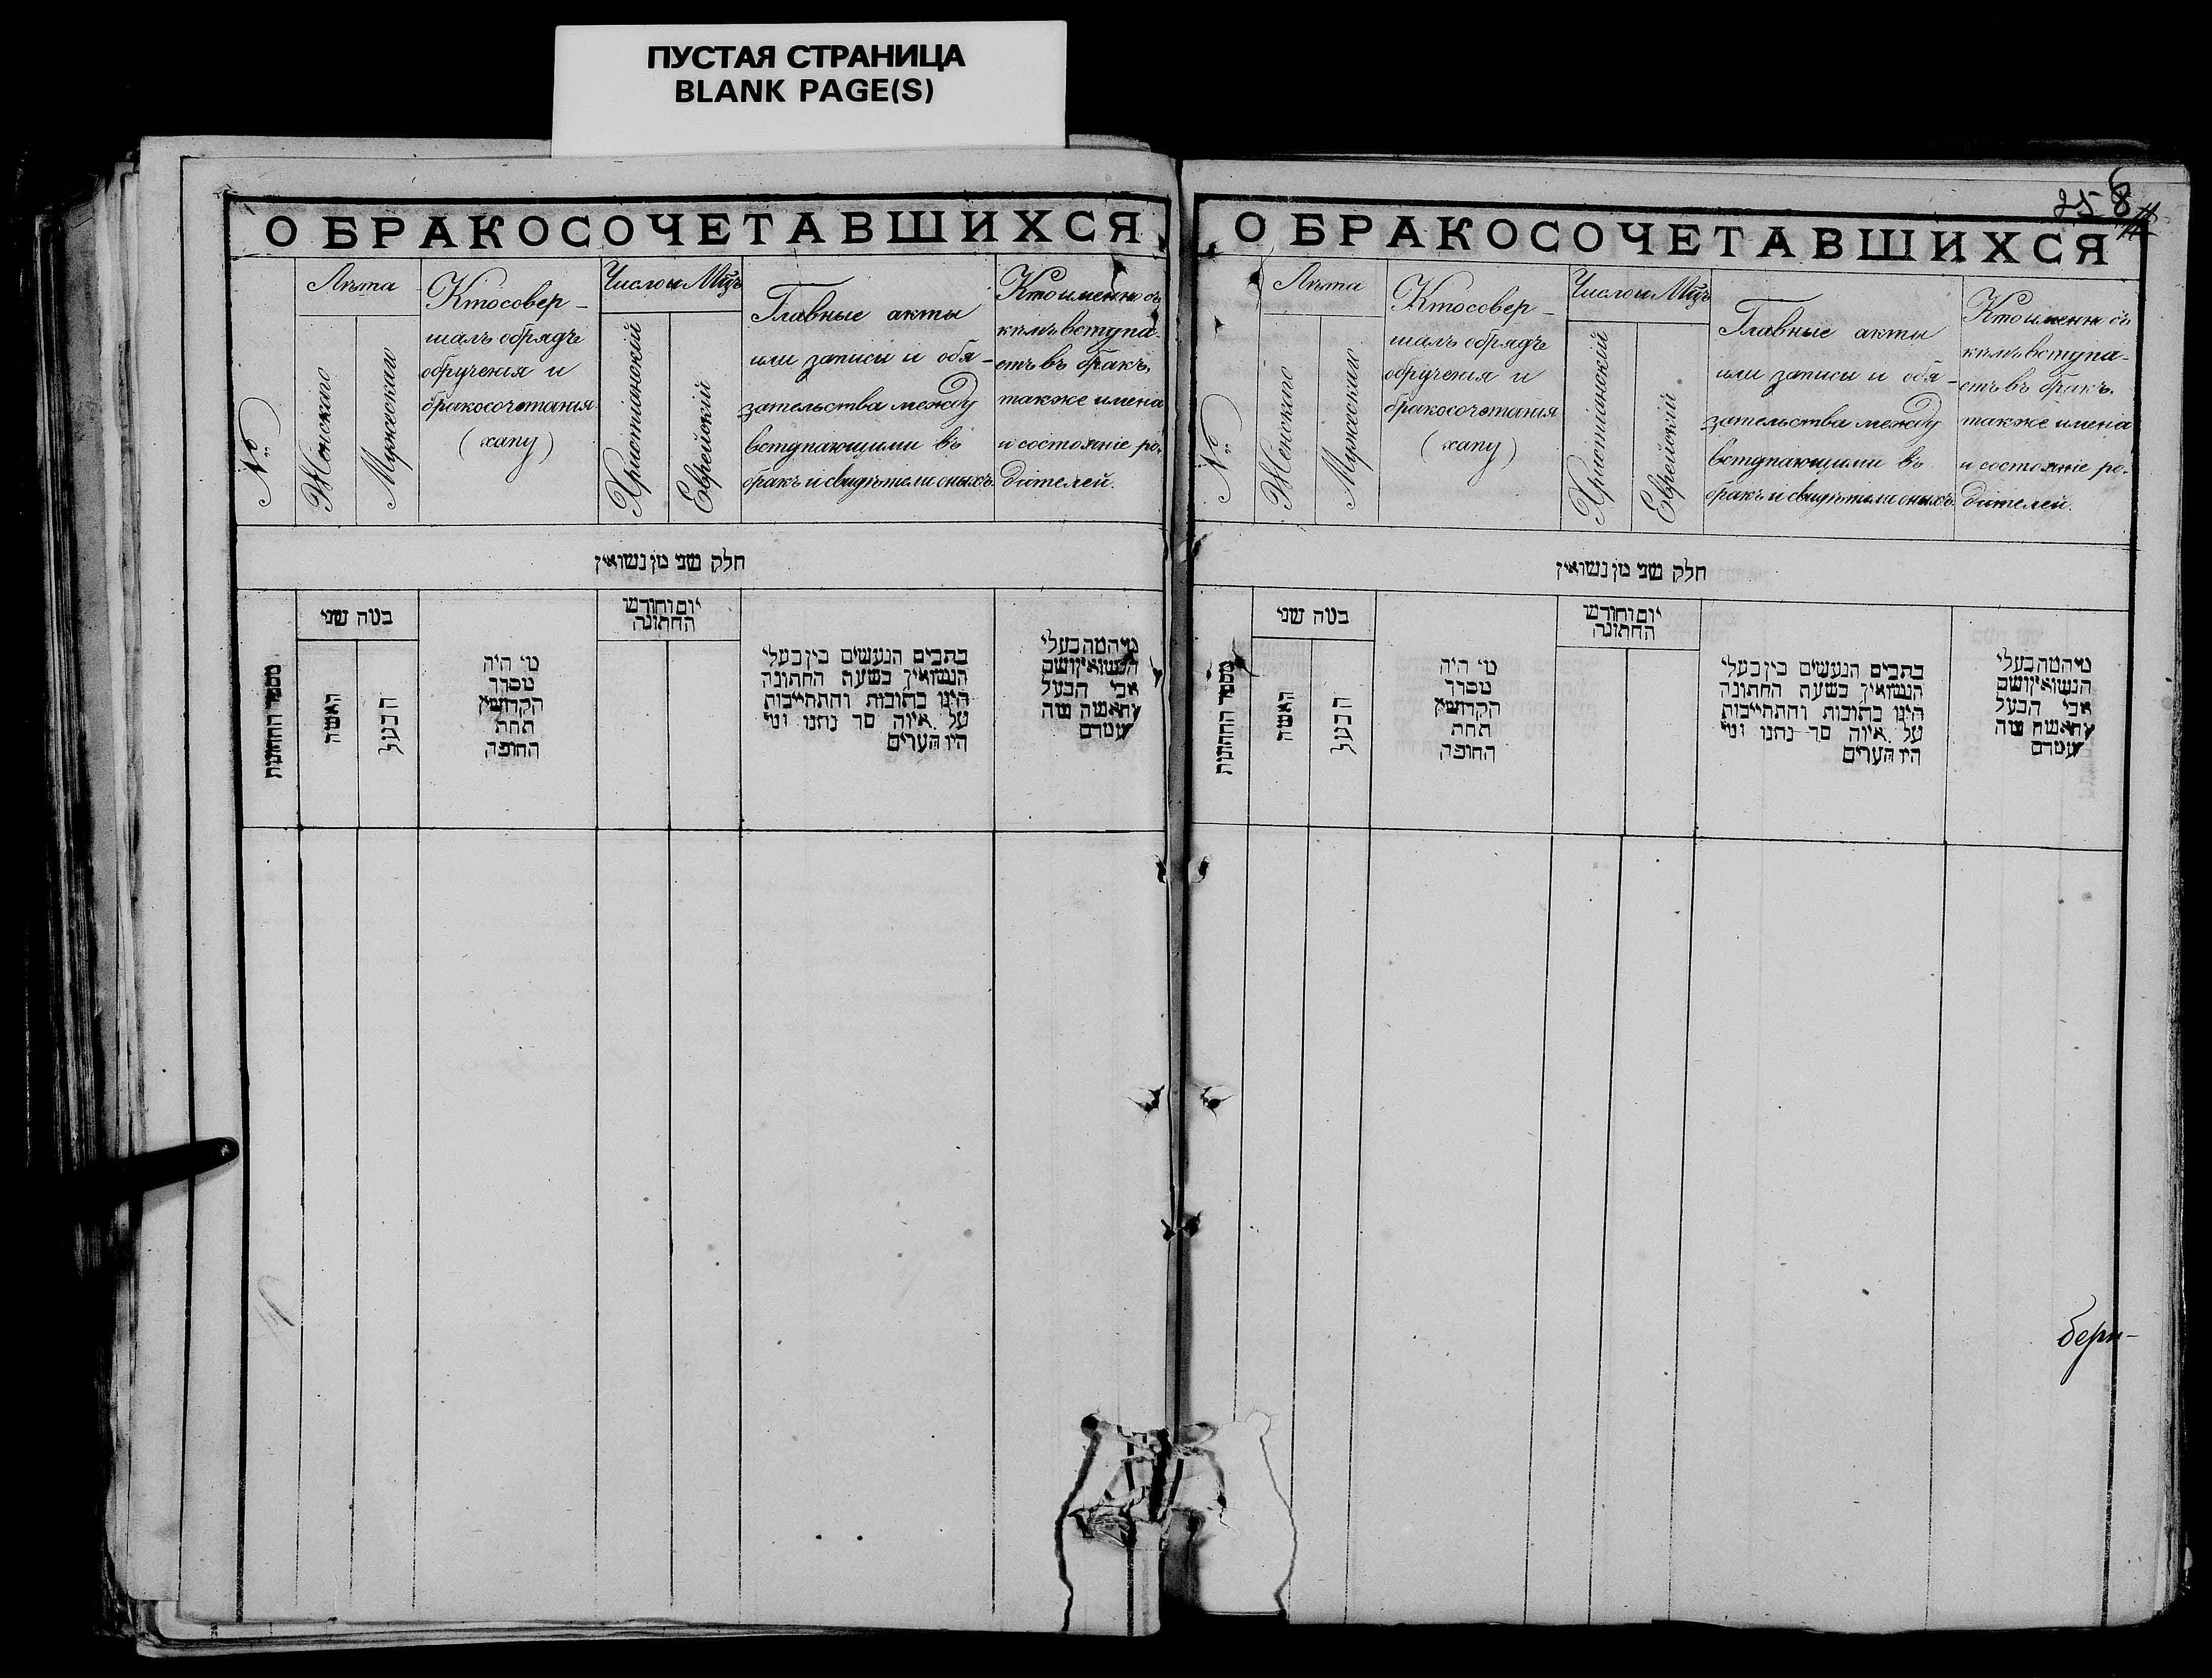 ПУСТАЯ СТРАНИЦА
BLANK PAGE(S)
О БРАКОСОЧЕТАВШИХСЯ
№
Лѣта
Женскаго
Мужескаго
Кто совер-
шалъ обрядъ
обрученія и
бракосочетанія
(хапу)
Число и Мѣцъ
Христіанскій
Еврейскій
Главные акты
или записи и обя-
зательства между
вступающими въ
бракъ и свидѣтели оныхъ.
Кто именно съ
кѣмъ вступа-
етъ въ бракъ,
также имена
и состояніе ро-
дителей.
חלק שני מן נשואין
מספר החתונות
כמה שני
האשה
הבעל
מי היה
מסדר
הקדושין
תחת
החופה
יום וחודש
החתונה
כתבים הנעשים בין בעלי
הנשואין בשעת החתונה
היינו כתובות והתחייבות
על איזה סך נתנו ומי
היו העדים
מי המה בעלי
הנשואין ושם
אבי הבעל
והאשה ומה
מעמדם
25 8
О БРАКОСОЧЕТАВШИХСЯ
№
Лѣта
Женскаго
Мужескаго
Кто совер-
шалъ обрядъ
обрученія и
бракосочетанія
(хапу)
Число и Мѣцъ
Христіанскій
Еврейскій
Главные акты
или записи и обя-
зательства между
вступающими въ
бракъ и свидѣтели оныхъ.
Кто именно съ
кѣмъ вступа-
етъ въ бракъ,
также имена
и состояніе ро-
дителей.
חלק שני מן נשואין
מספר החתונות
כמה שני
האשה
הבעל
מי היה
מסדר
הקדושין
תחת
החופה
יום וחודש
החתונה
כתבים הנעשים בין בעלי
הנשואין בשעת החתונה
היינו כתובות והתחייבות
על איזה סך נתנו ומי
היו העדים
מי המה בעלי
הנשואין ושם
אבי הבעל
והאשה ומה
מעמדם